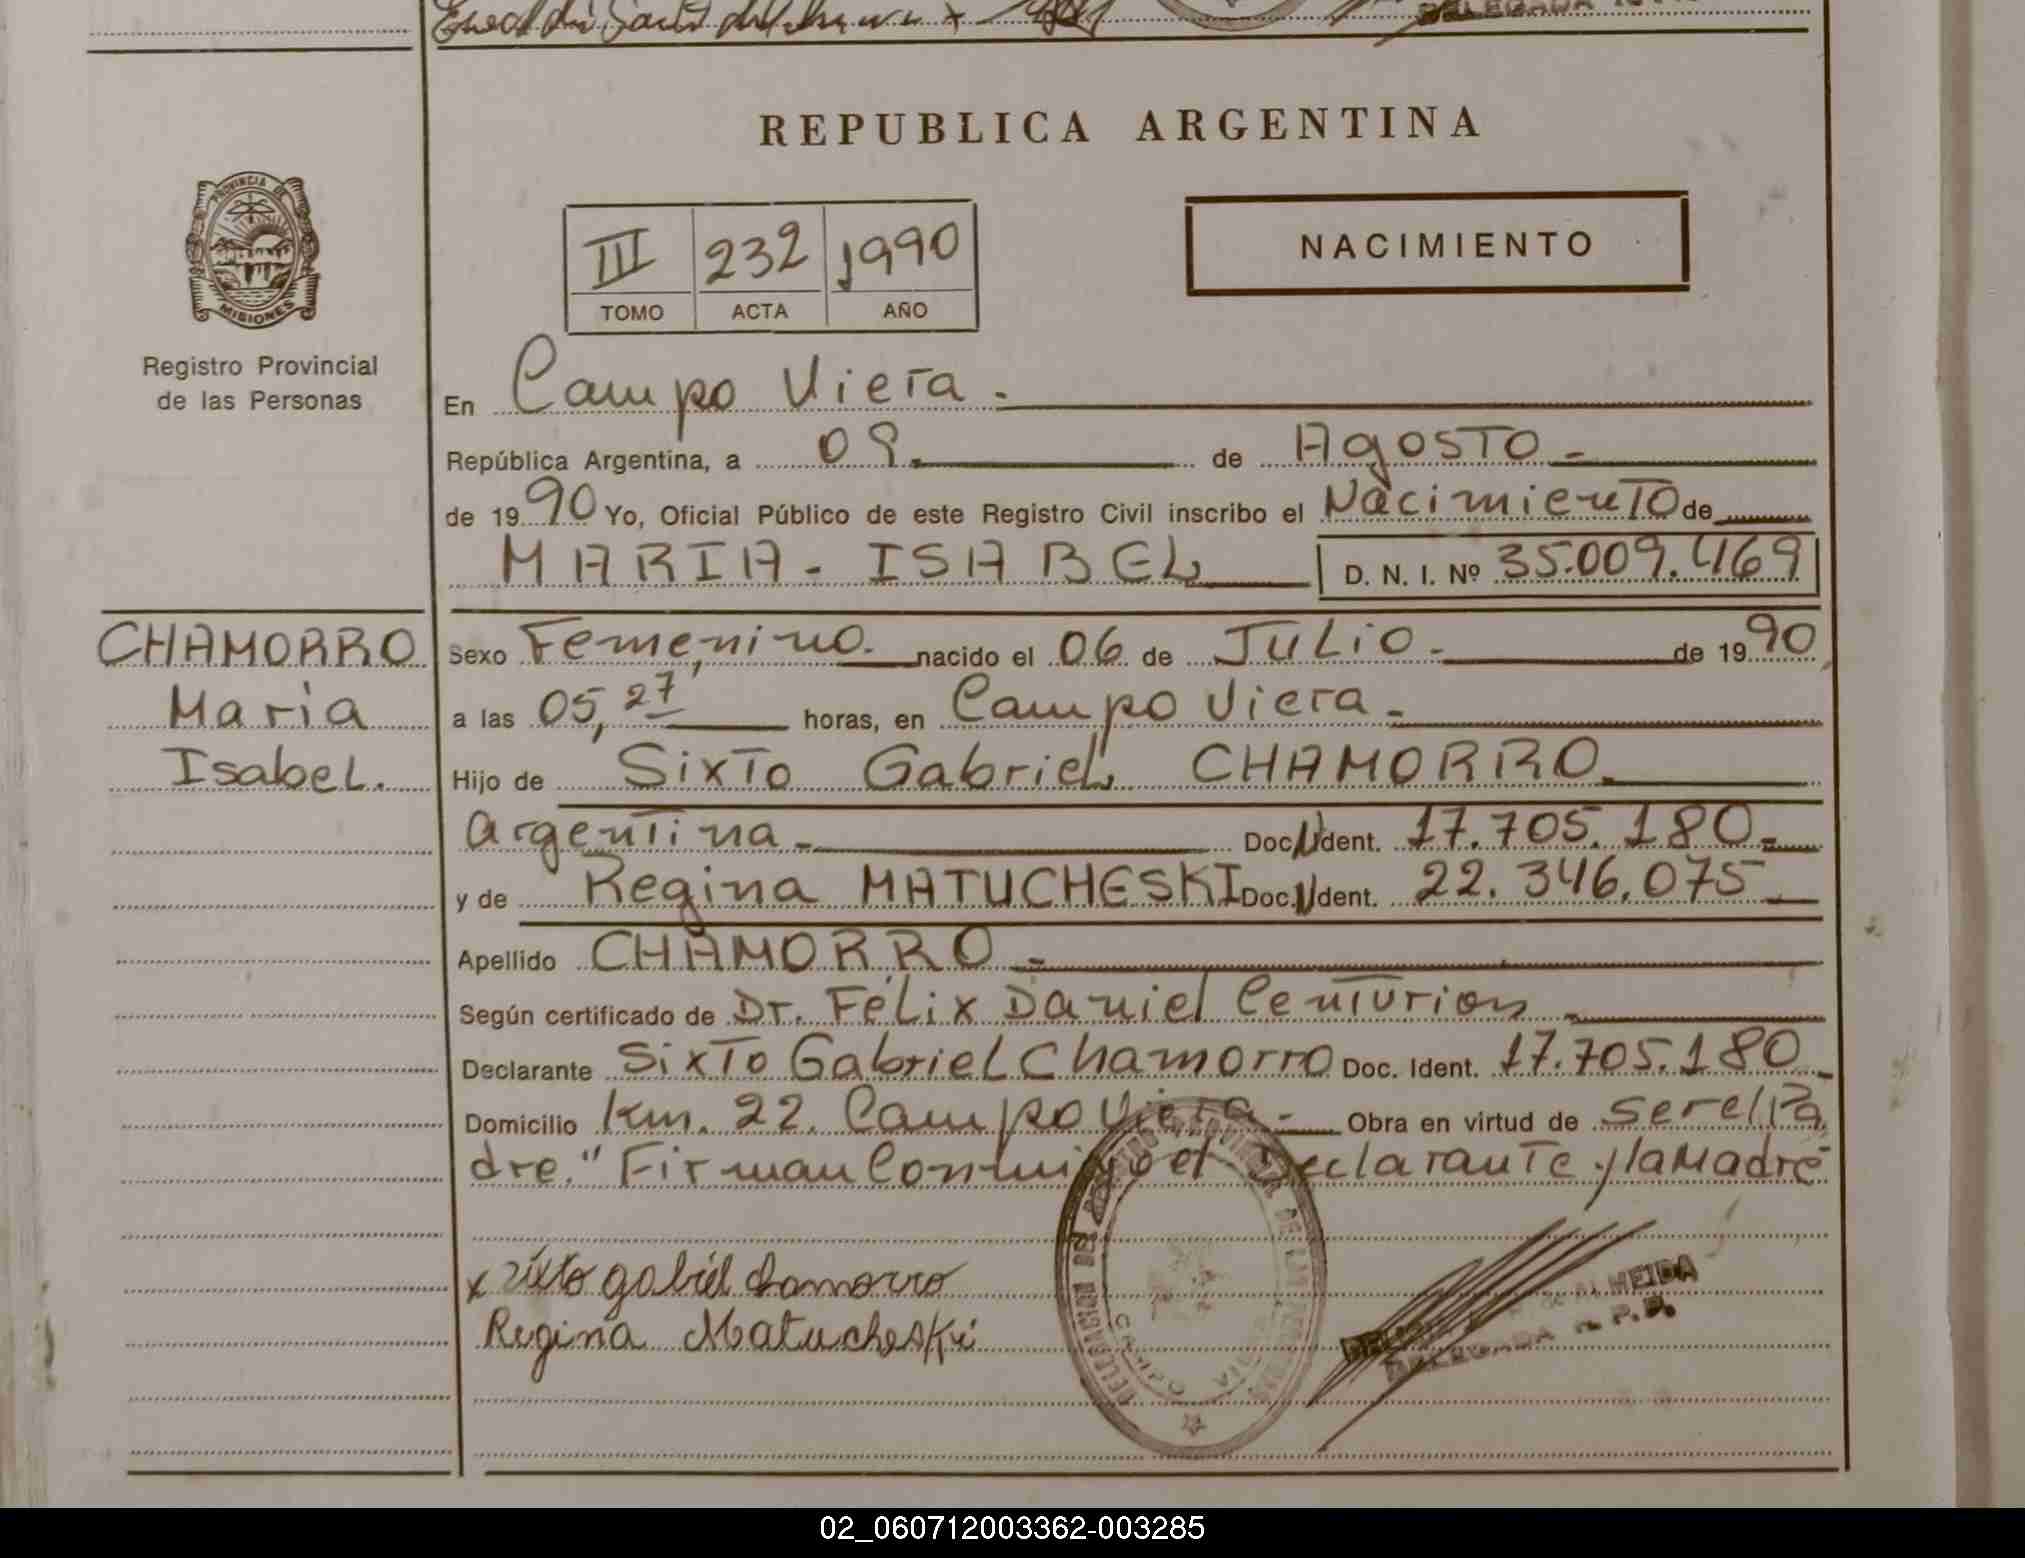 REPUBLICA ARGENTINA
PROVINCIA DE MISIONES
Registro Provincial
de las Personas
III 232 1990
TOMO ACTA AÑO
NACIMIENTO
En Campo Viera.
República Argentina, a 09. de Agosto
de 1990 Yo, Oficial Público de este Registro Civil inscribo el Nacimiento de
MARIA - ISABEL D. N. I. Nº 35.009.469
CHAMORRO
Maria
Isabel.
Sexo Femenino. nacido el 06 de Julio. de 1990
a las 05,27 horas, en Campo Viera.
Hijo de Sixto Gabriel CHAMORRO.
Argentina Doc. Ident. 17.705.180
y de Regina MATUCHESKI Doc. Ident. 22.346.075
Apellido CHAMORRO
Según certificado de Dr. Félix Daniel Centurion
Declarante Sixto Gabriel Chamorro Doc. Ident. 17.705.180
Domicilio Km. 22. Campo Viera. Obra en virtud de ser el Pa
dre." Firman Conmigo el Declarante y la Madre
x sixto gabriel chamorro
Regina Matucheski
CAMPO VIERA
ALMEIDA
DELEGADA R. P. P.
02_060712003362-003285